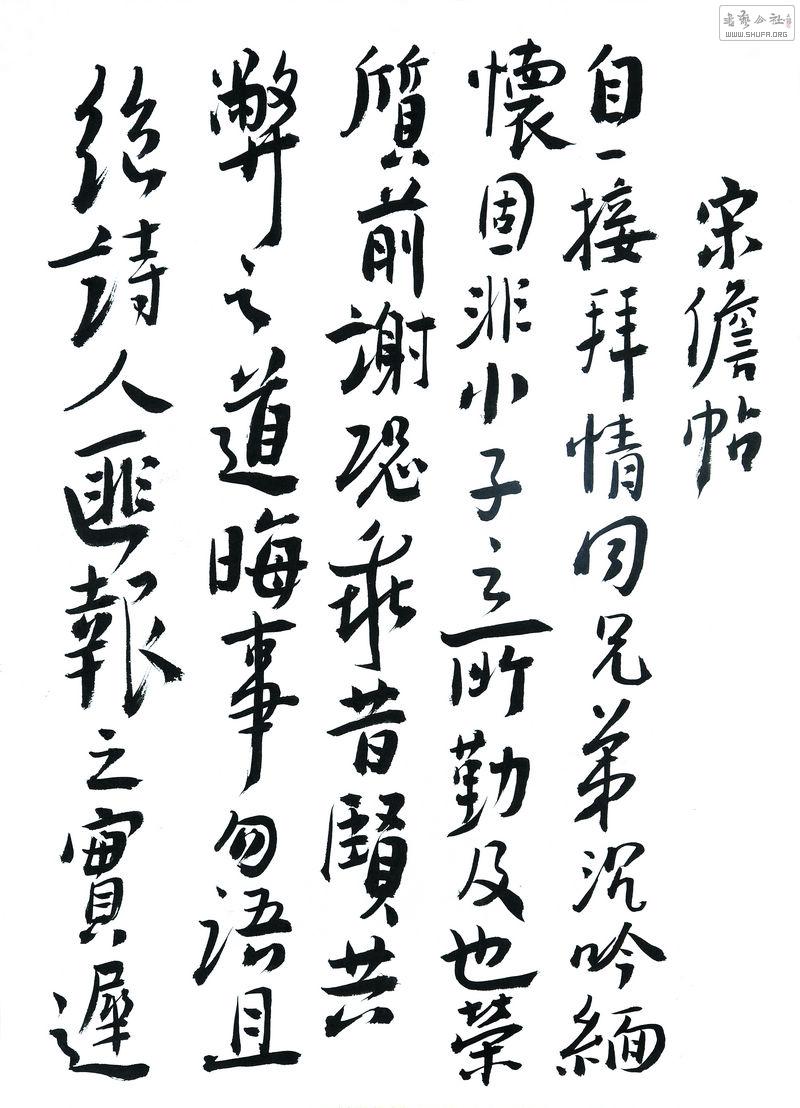 宋儋帖
自一接拜情同兄弟沉吟緬
懷固非小子之所勤及也榮
質前謝恐乖昔賢共
弊之道晦事勿語且
絕詩人匪報之實遲
WWW.SHUFA.ORG